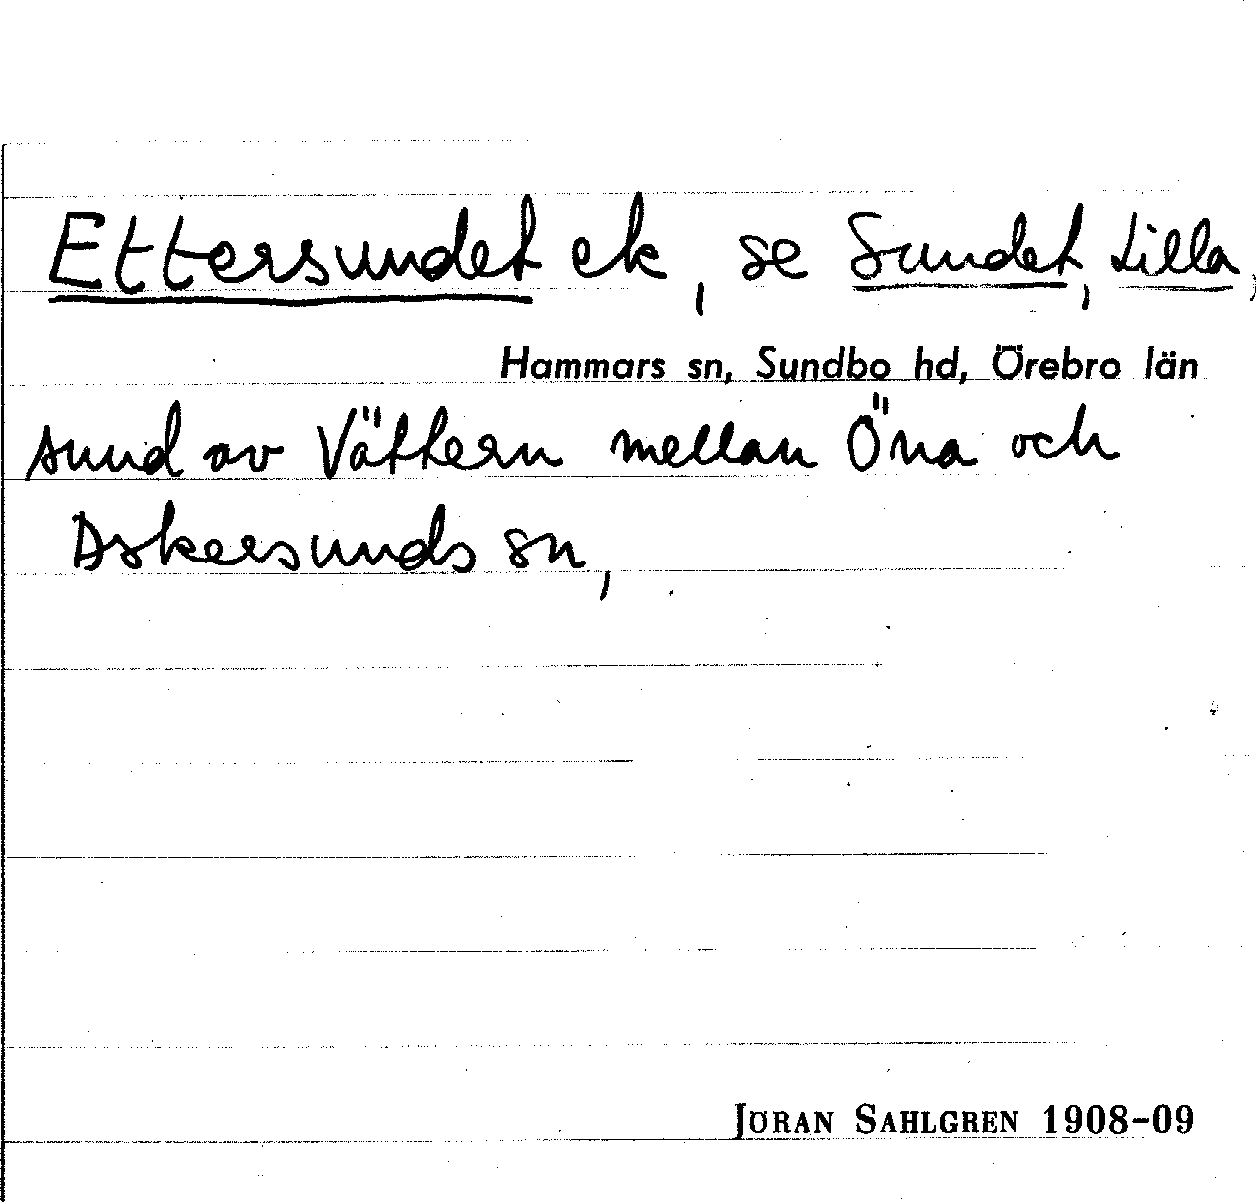 Ettersundet ek, se Sundet, Lilla,
Hammars sn, Sundbo hd, Örebro län
sund av Vättern mellan Öna och
Askersunds sn,
JÖRAN SAHLGREN 1908-09